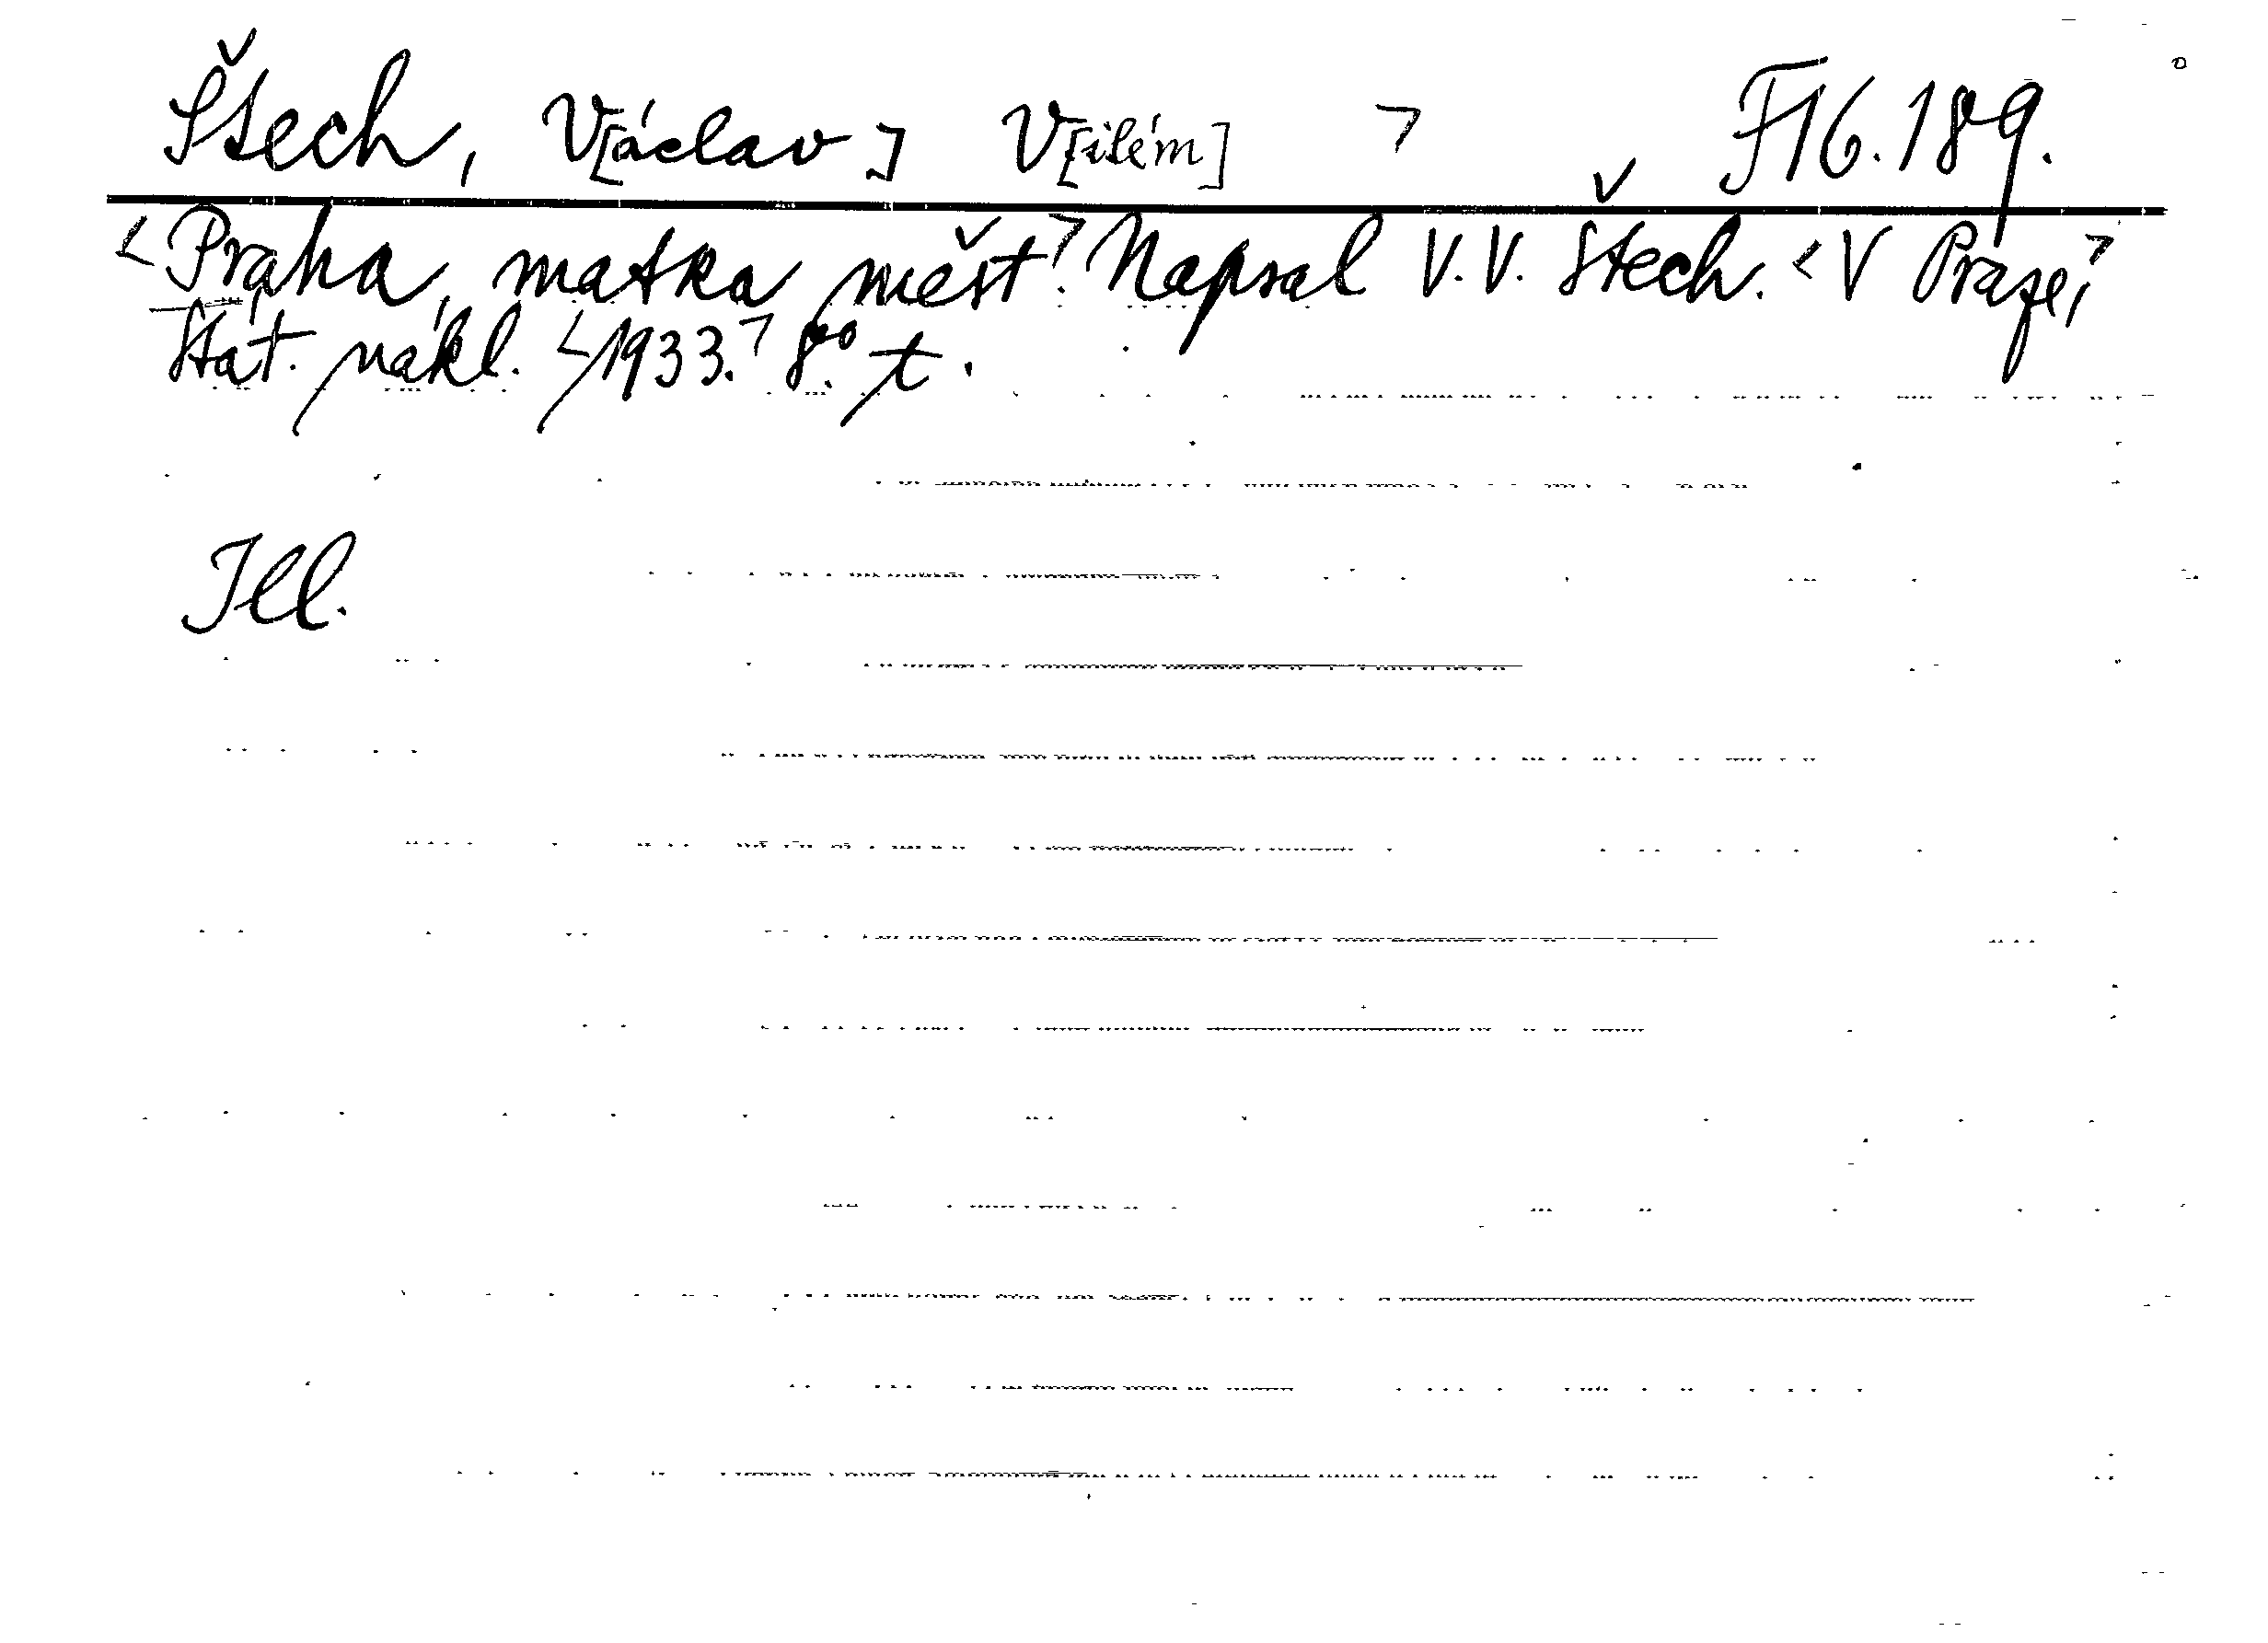 Štech, V[áclav] V[ilém] ⌝ F16.189.
<Praha, matka měst.⌝ Napsal V. V. Štech. <V Praze,⌝
Stát. nákl. <1933.⌝ 8.° t.
Ill.